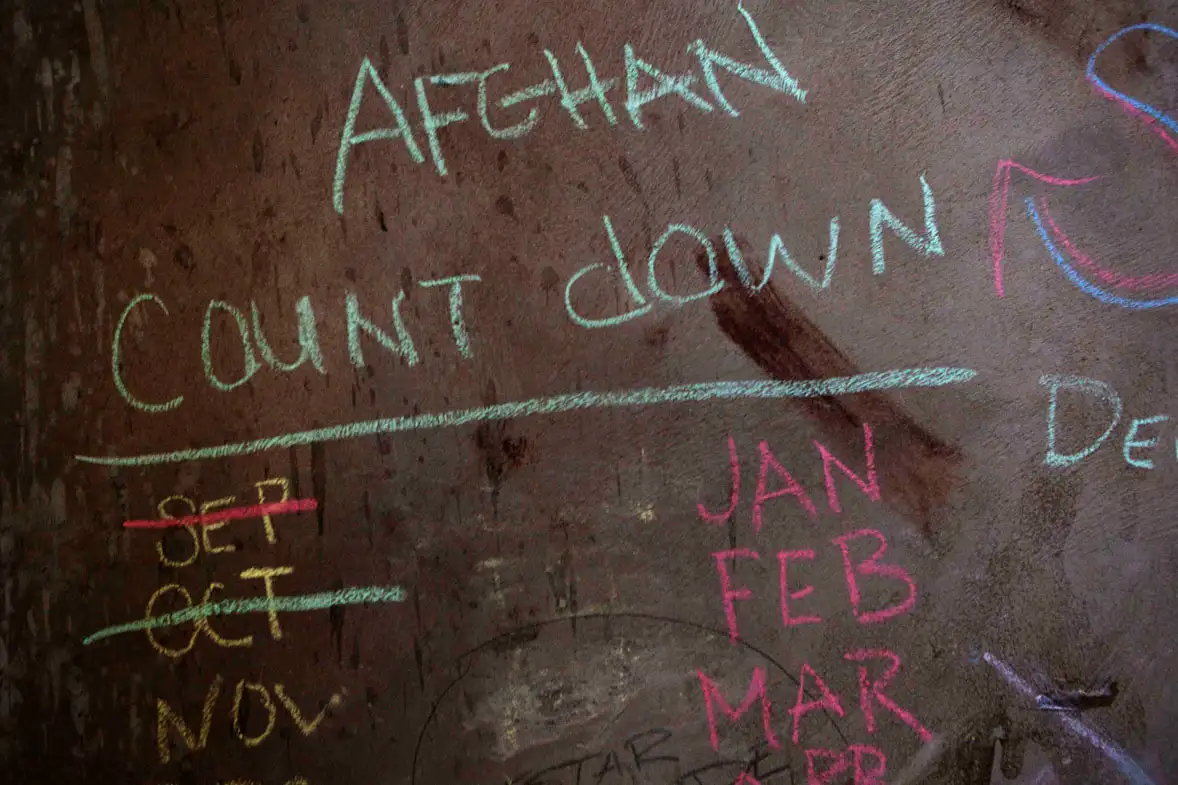 AFGHAN
COUNT dOWN
SEP
OCT
NOV
JAN
FEB
MAR
APR